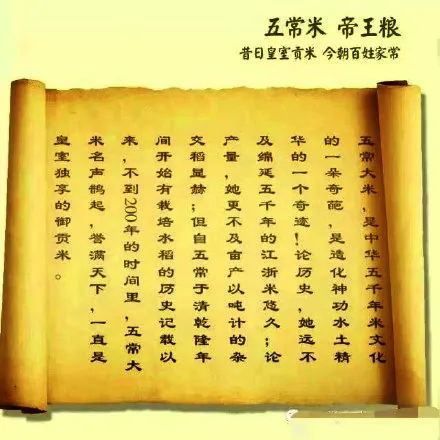 五常米 帝王粮
昔日皇室贡米 今朝百姓家常
五常大米，是中华五千年米文化
的一朵奇葩，是造化神功水土精
华的一个奇迹！论历史，她远不
及绵延五千年的江浙米悠久；论
产量，她更不及亩产以吨计的杂
交稻显赫；但自五常于清乾隆年
间开始有栽培水稻的历史记载以
来，不到200年的时间里，五常大
米名声鹊起，誉满天下，一直是
皇室独享的御贡米。